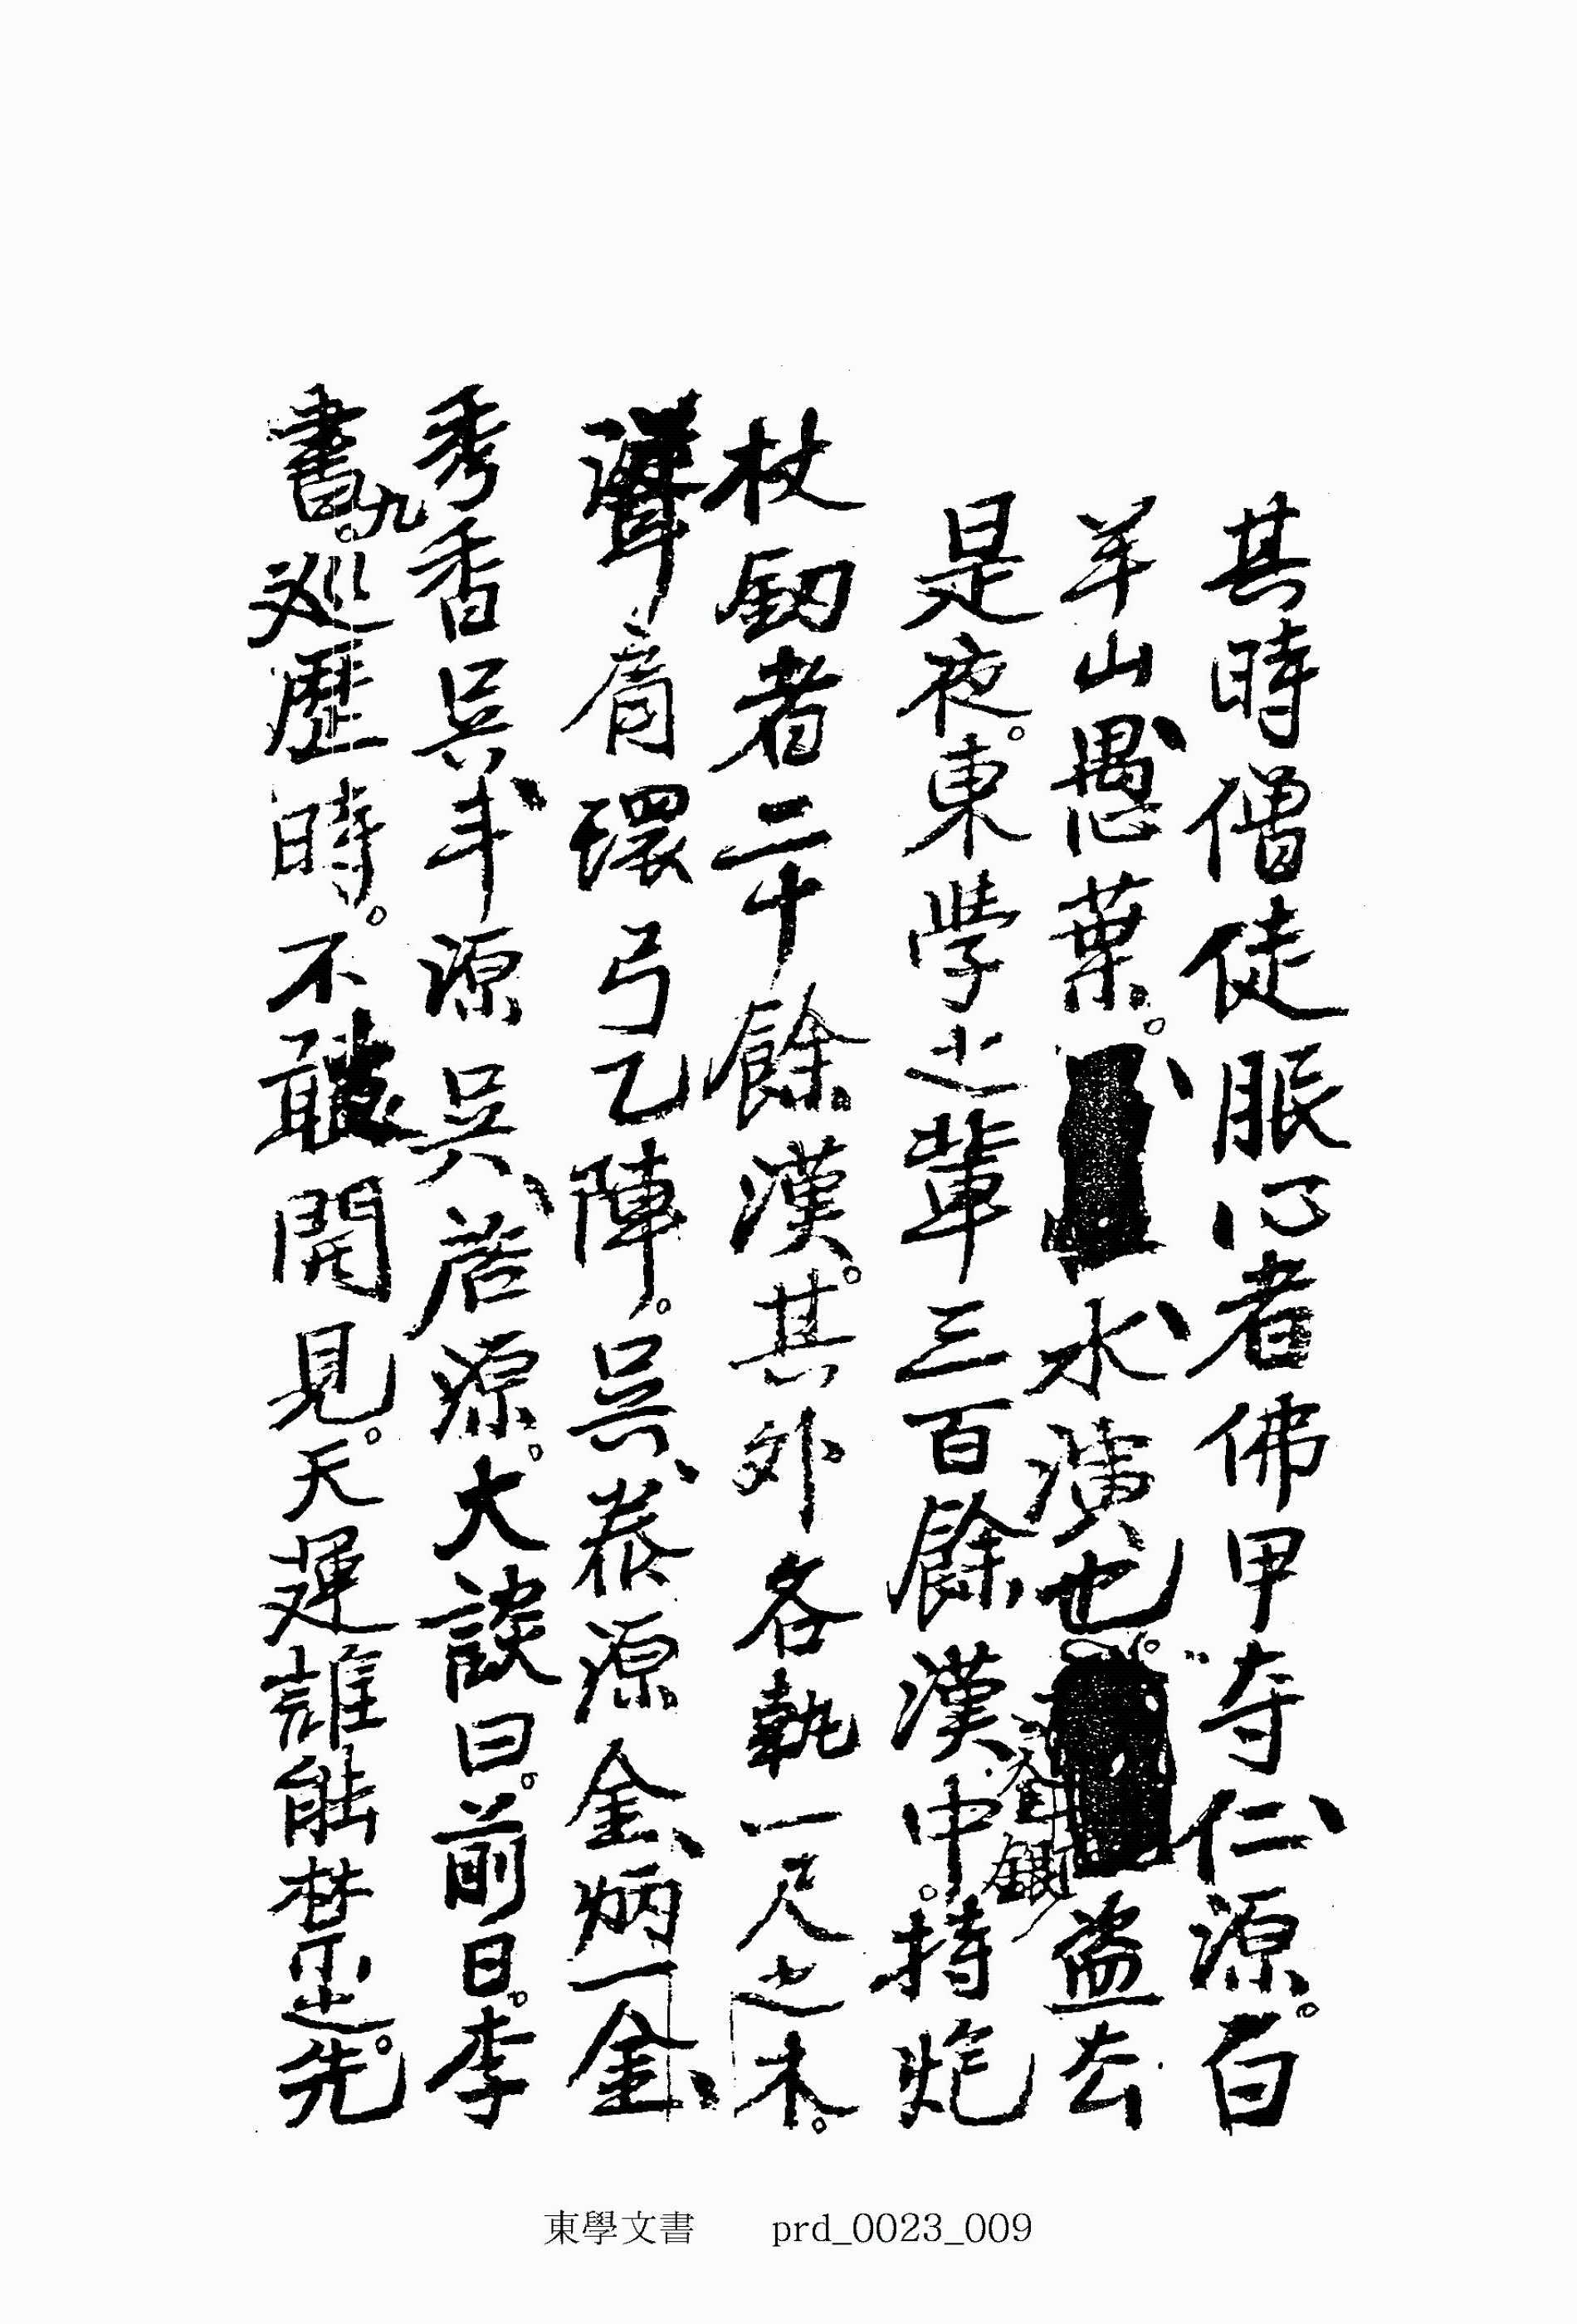 其時僧徒服心者佛甲寺仁源。白
羊山愚葉。水演也。盜去
是夜。東學之輩三百餘漢中。持炮
杖釰者二十餘漢。其外各執一尺之木。
聲肩環弓乙陣。吳泰源金炳一金
秀香吳斗源吳응源。大談曰。前日。李
書九。巡歷時。不敢開見。天運誰能禁止。先
東學文書 prd_0023_009